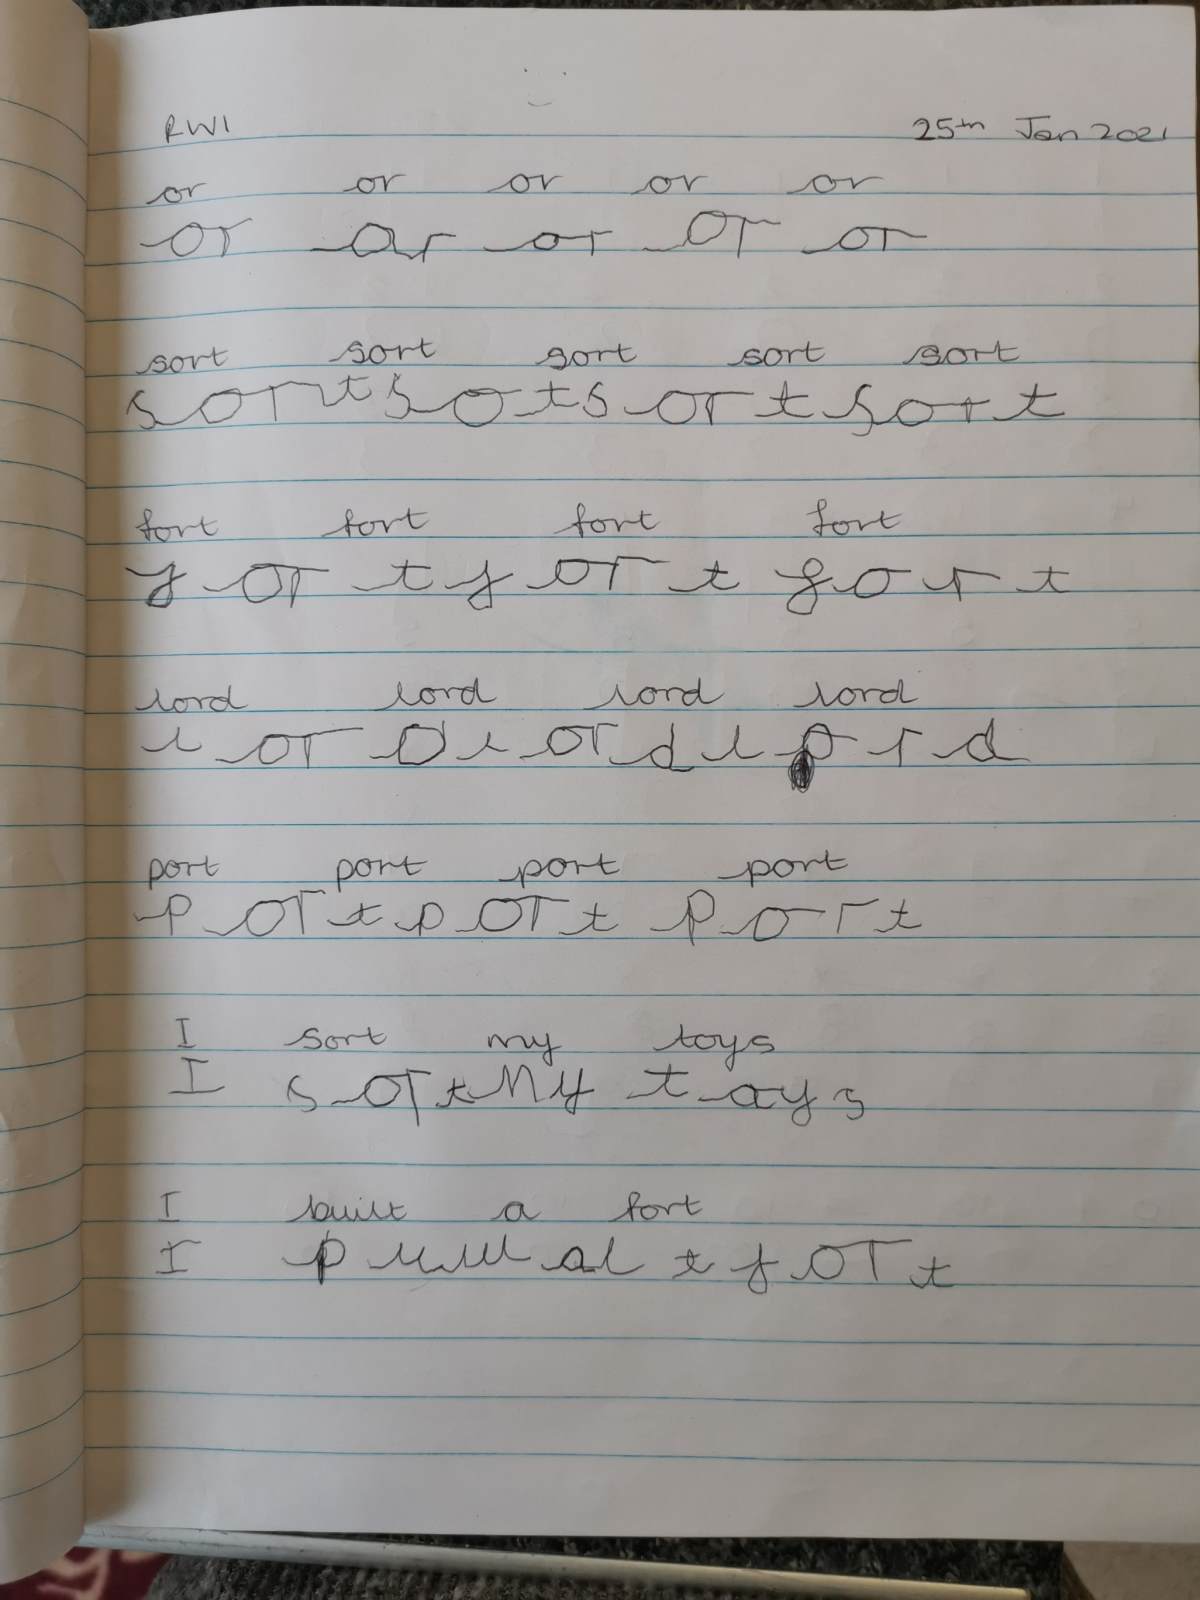 RWI 25th Jan 2021
or or or or or
or or or or or
sort sort sort sort sort
sort sot sort sort
fort fort fort fort
fort fort fort
lord lord lord lord
lord lord lord
port port port port
port port port
I sort my toys
I sort My tays
I built a fort
I fort